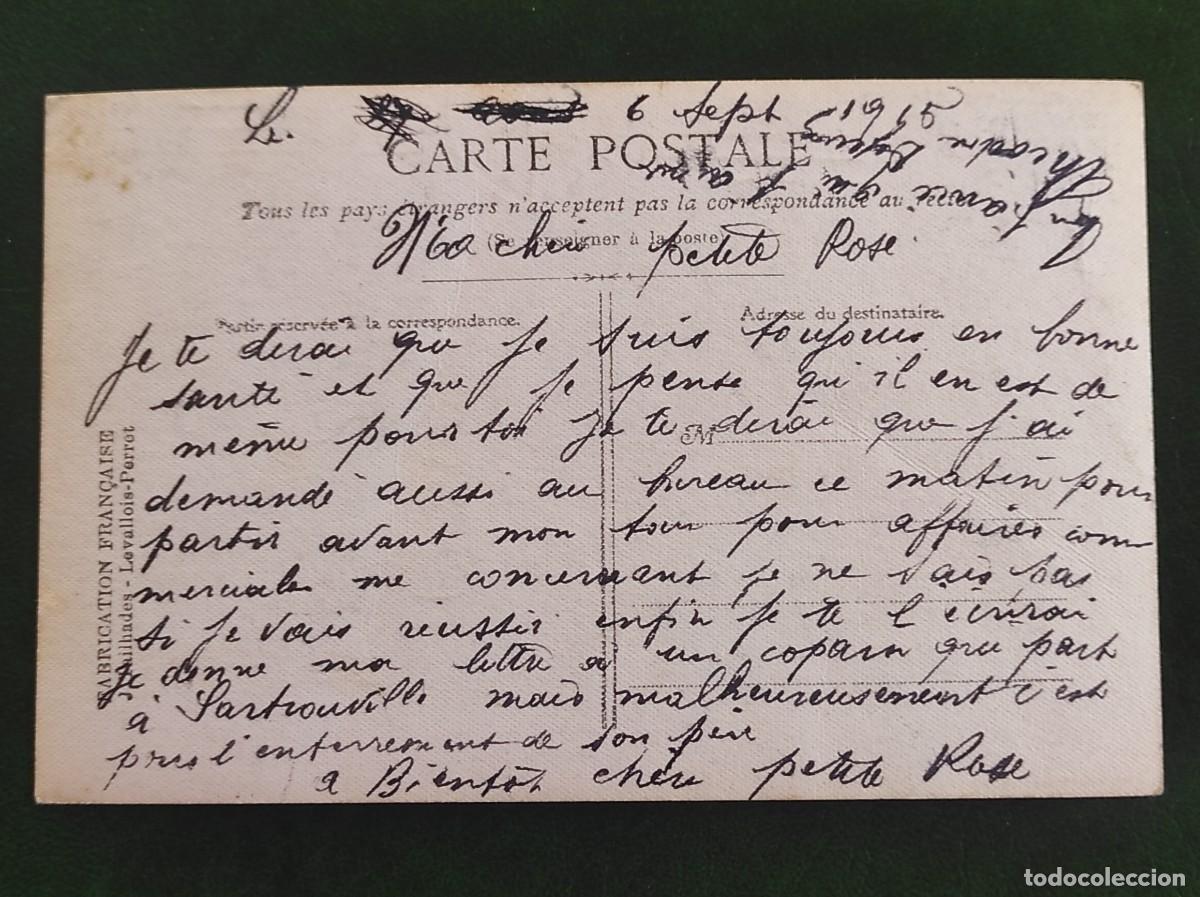 Le. 6 sept
CARTE POSTALE
Tous les pays étrangers n'acceptent pas la correspondance au recto
(Se renseigner à la poste)
Ma cheri petite Rose
Partie réservée à la correspondance.
Adresse du destinataire.
Je te dirai que je suis toujours en bonne
santé et que je pense qu'il en est de
même pour toi Je te dirai que j'ai
M
demandé aussi au bureau ce matin pour
partir avant mon tour pour affaires com
merciales me concernant je ne sais pas
si je vais réussir enfin je te l'écrirai
je donne ma lettre à un copain que part
à Sartrouville mais malheureusement c'est
pour l'enterrement de son père
a Bientôt chéri petite Rose
Ton fiancé qui t'aime
Théodore
FABRICATION FRANÇAISE
- Levallois-Perret
todocoleccion